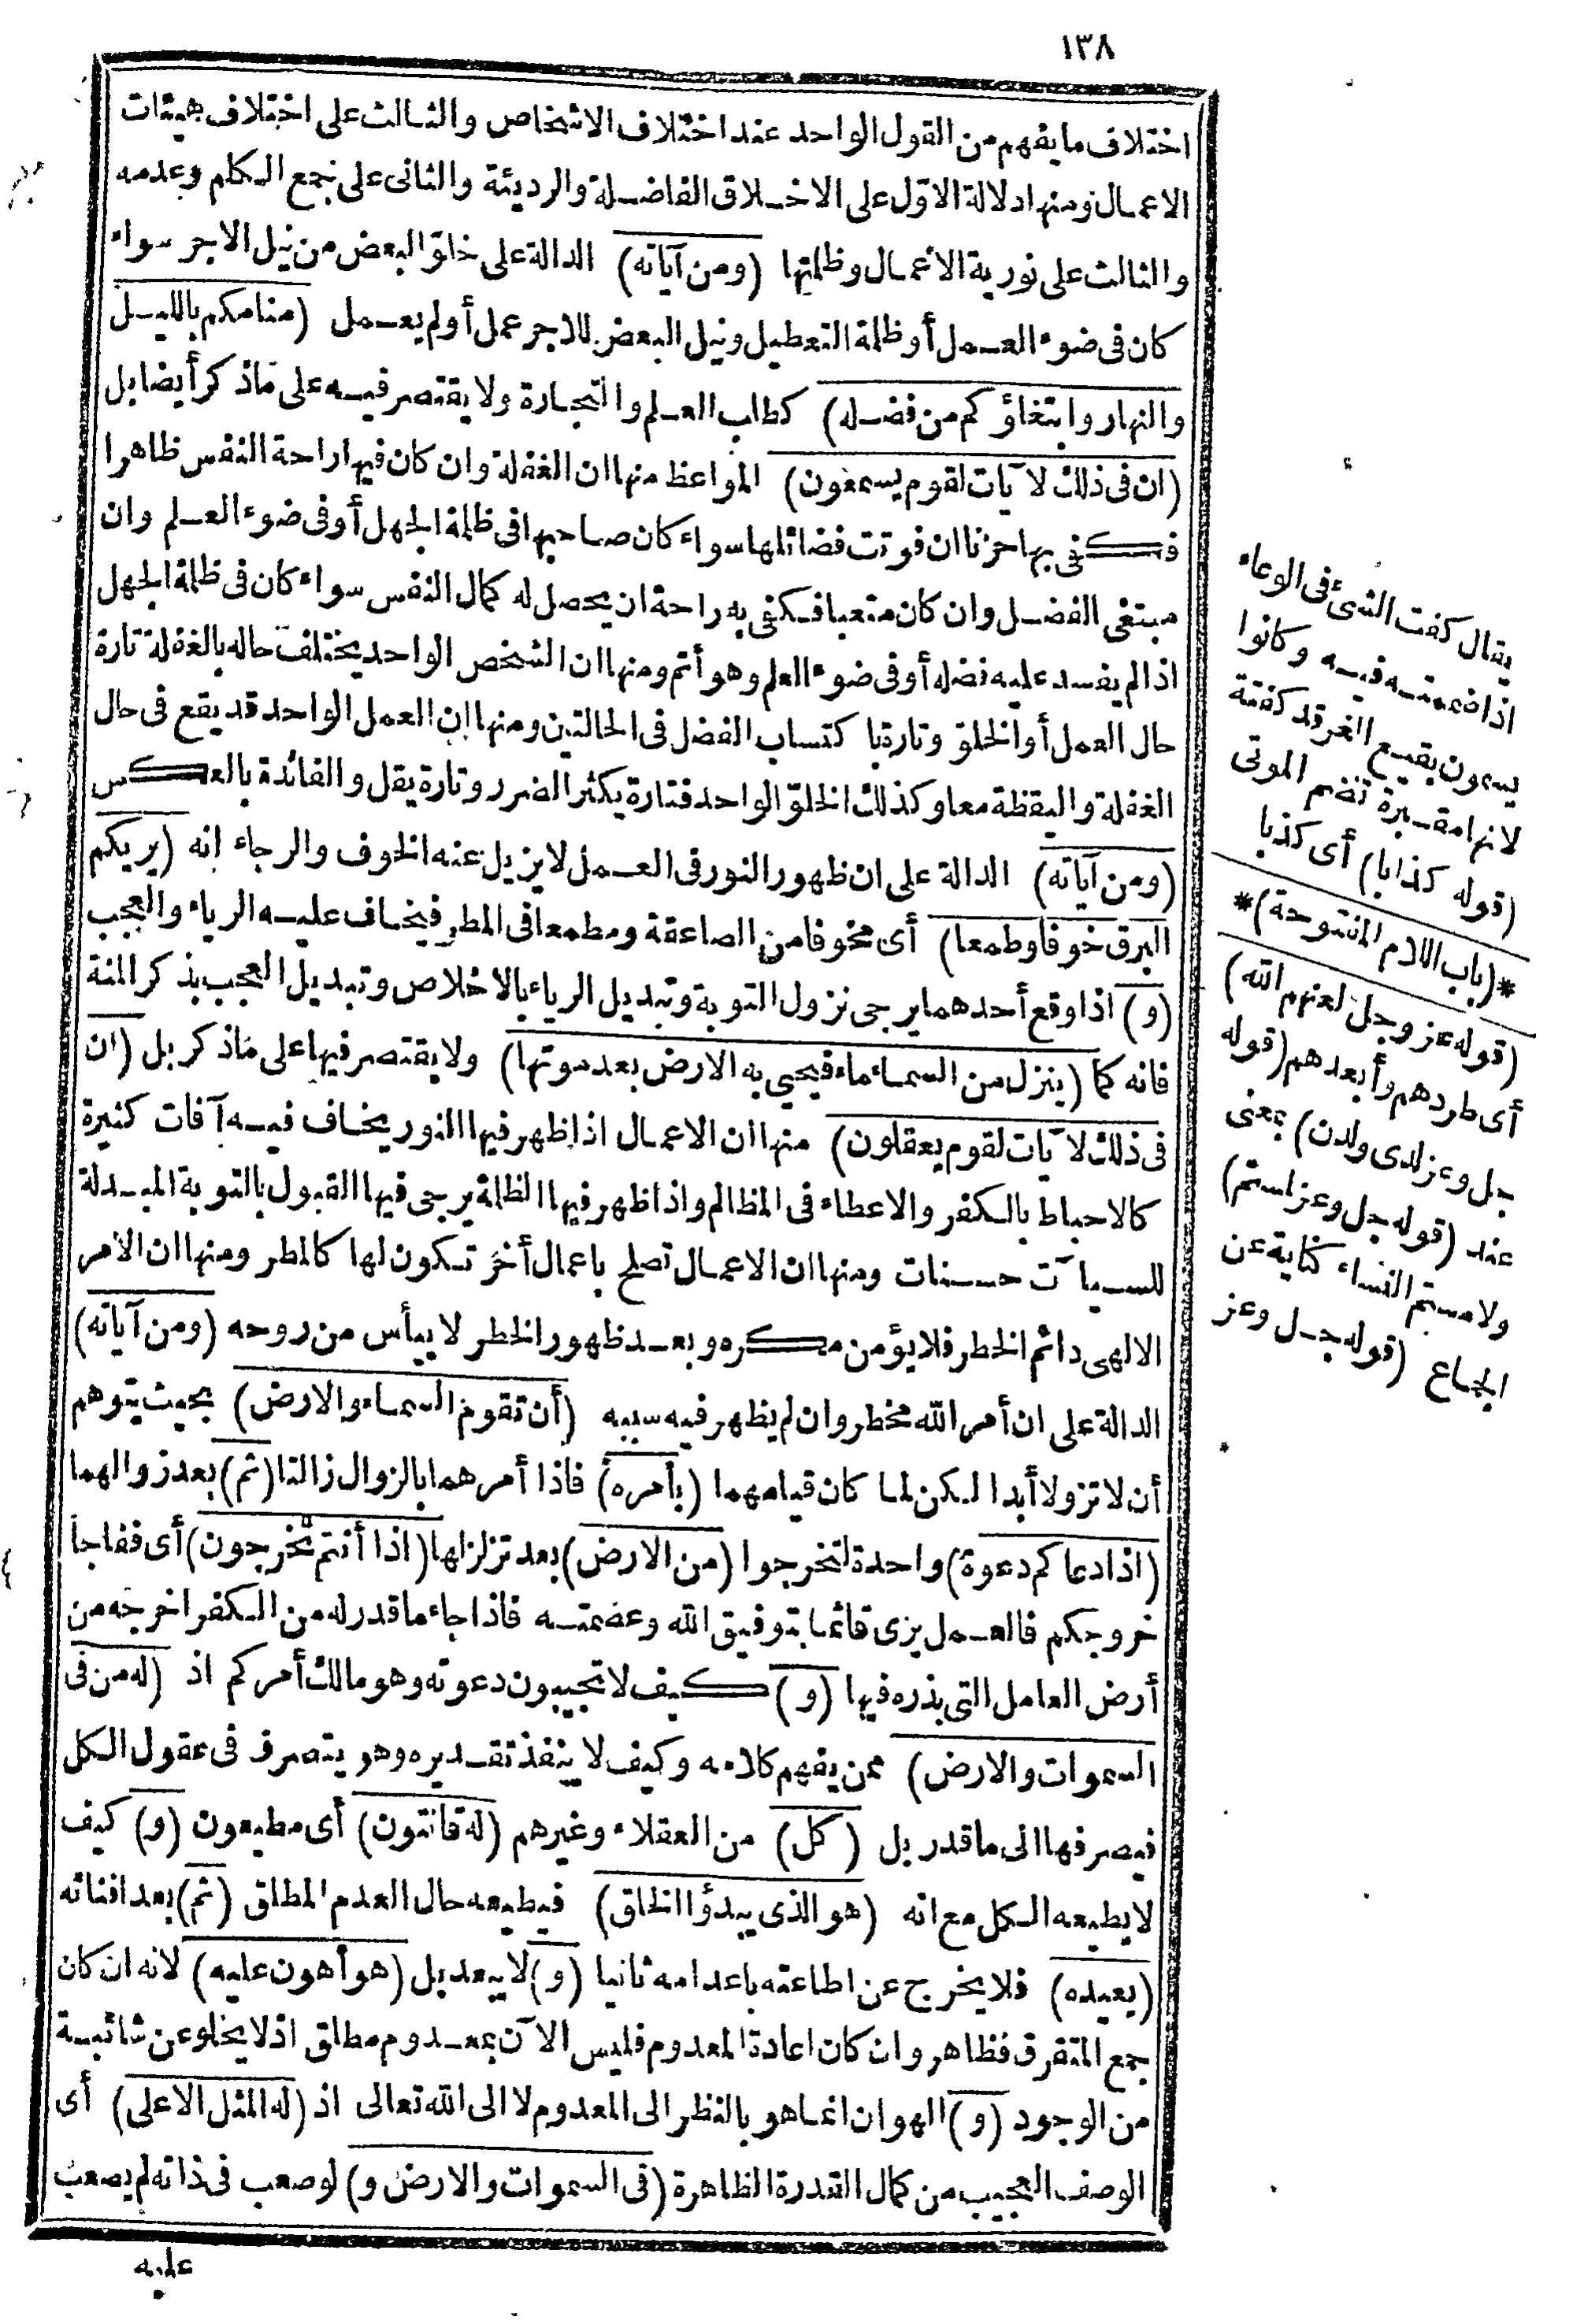 ١٣٨
اختلاف ما يفهم من القول الواحد عند اختلاف الاشخاص والثالث على اختلاف هيئات
الاعمال ومنها دلالة الاوّل على الاخلاق الفاضلة والرديئة والثانى على نجع الكلام وعدمه
والثالث على نورية الأعمال وظلمتها (ومن آياته) الدالة على خلوّ البعض من نيل الاجر سواء
كان فى ضوء العمل أو ظلمة التعطيل ونيل البعض للاجر عمل أولم يعمل (منامكم بالليل
والنهار وابتغاؤكم من فضله) كطلب العلم والتجارة ولا يقتصر فيه على ما ذكر أيضا بل
(ان فى ذلك لآيات لقوم يسمعون) المواعظ منها ان الغفلة وان كان فيها راحة النفس ظاهرا
فكفى بها حزنا ان فوتت فضائلها سواء كان صاحبها فى ظلمة الجهل أو فى ضوء العلم وان
مبتغى الفضل وان كان متعبا فكفى به راحة ان يحصل له كمال النفس سواء كان فى ظلمة الجهل
اذا لم يفسد عليه فضله أو فى ضوء العلم وهو أتم ومنها ان الشخص الواحد يختلف حاله بالغفلة تارة
حال العمل أو الخلوّ وتارة با كتساب الفضل فى الحالتين ومنها ان العمل الواحد قد يقع فى حال
الغفلة واليقظة معا وكذلك الخلوّ الواحد فتارة يكثر الضرر وتارة يقل والفائدة بالعكس
(ومن آياته) الدالة على ان ظهور النور فى العمل لا يزيل عنه الخوف والرجاء انه (يريكم
البرق خوفا وطمعا) أى مخوفا من الصاعقة ومطمعا فى المطر فيخاف عليه الرياء والعجب
(و) اذا وقع أحدهما يرجى نزول التوبة وتبديل الرياء بالاخلاص وتبديل العجب بذكر المنة
فانه كما (ينزل من السماء ماء فيحيى به الارض بعد موتها) ولا يقتصر فيها على ما ذكر بل (ان
فى ذلك لآيات لقوم يعقلون) منها ان الاعمال اذا ظهر فيها النور يخاف فيه آفات كثيرة
كالاحباط بالكفر والاعطاء فى المظالم واذا ظهر فيها الظلمة يرجى فيها القبول بالتوبة المبدلة
للسيآت حسنات ومنها ان الاعمال تصلح باعمال أخر تكون لها كالمطر ومنها ان الامر
الالهى دائم الخطر فلا يؤمن مكره وبعد ظهور الخطر لا ييأس من روحه (ومن آياته)
الدالة على ان أمر الله مخطر وان لم يظهر فيه سببه (أن تقوم السماء والارض) بحيث يتوهم
أن لا تزولا أبدا لكن لما كان قيامهما (بأمره) فاذا أمرهما بالزوال زالتا (ثم) بعد زوالهما
(اذا دعاكم دعوة) واحدة لتخرجوا (من الارض) بعد تزلزلها (اذا أنتم تخرجون) أى ففاجأ
خروجكم فالعمل يرى قائما بتوفيق الله وعصمته فاذا جاء ما قدر له من الكفر اخرجه من
أرض العامل التى بذره فيها (و) كيف لا تجيبون دعوته وهو مالك أمركم اذ (له من فى
السموات والارض) ممن يفهم كلامه وكيف لا ينفذ تقديره وهو يتصرف فى عقول الكل
فيصرفها الى ما قدر بل (كل) من العقلاء وغيرهم (له قانتون) أى مطيعون (و) كيف
لا يطيعه الكل مع انه (هو الذى يبدؤا الخلق) فيطيعه حال العدم المطلق (ثم) بعد افنائه
(يعيده) فلا يخرج عن اطاعته باعدامه ثانيا (و) لا يبعد بل (هو أهون عليه) لانه ان كان
جمع المتفرق فظاهر وان كان اعادة المعدوم فليس الآن بمعدوم مطلق اذ لا يخلو عن شائبة
من الوجود (و) الهوان انما هو بالنظر الى المعدوم لا الى الله تعالى اذ (له المثل الاعلى) أى
الوصف العجيب من كمال القدرة الظاهرة (فى السموات والارض و) لو صعب فى ذاته لم يصعب
عليه
يقال كفت الشىء فى الوعاء
اذا ضممته فيه وكانوا
يسمون بقيع الغرقد كفتة
لانها مقبرة تضم الموتى
(قوله كذابا) أى كذبا
*(باب اللام المفتوحة)*
(قوله عز وجل لعنهم الله)
أى طردهم وأبعدهم (قوله
جل وعز لدى ولدن) بمعنى
عند (قوله جل وعز لمستم)
ولامستم النساء كناية عن
الجماع (قوله جل وعز